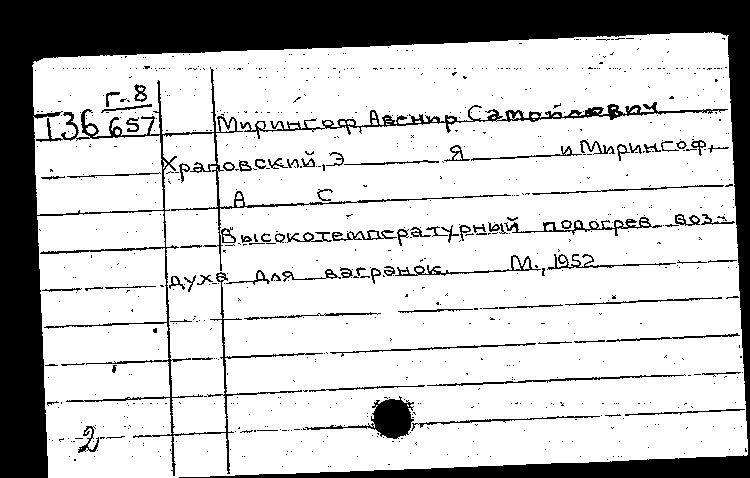 Г-8
Т36 657
Мирингоф, Авенир Самойлович
Храповский, Э Я и Мирингоф,
А С
Высокотемпературный подогрев воз-
духа для вагранок. М., 1952
2